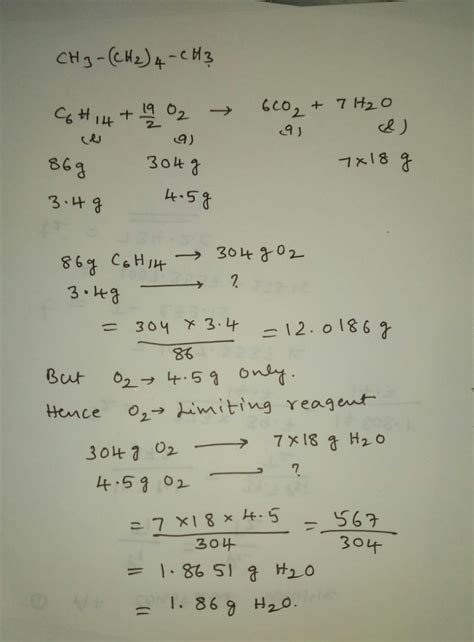 CH3-(CH2)4-CH3
C6H14 + 19/2 O2 → 6CO2 + 7H2O
(l) (g) (g) (l)
86g 304g 7×18 g
3.4g 4.5g
86g C6H14 → 304g O2
3.4g → ?
= 304 × 3.4 / 86 = 12.0186g
But O2 → 4.5g only.
Hence O2 → Limiting reagent
304g O2 → 7×18 g H2O
4.5g O2 → ?
= 7×18×4.5 / 304 = 567 / 304
= 1.8651 g H2O
= 1.86g H2O.